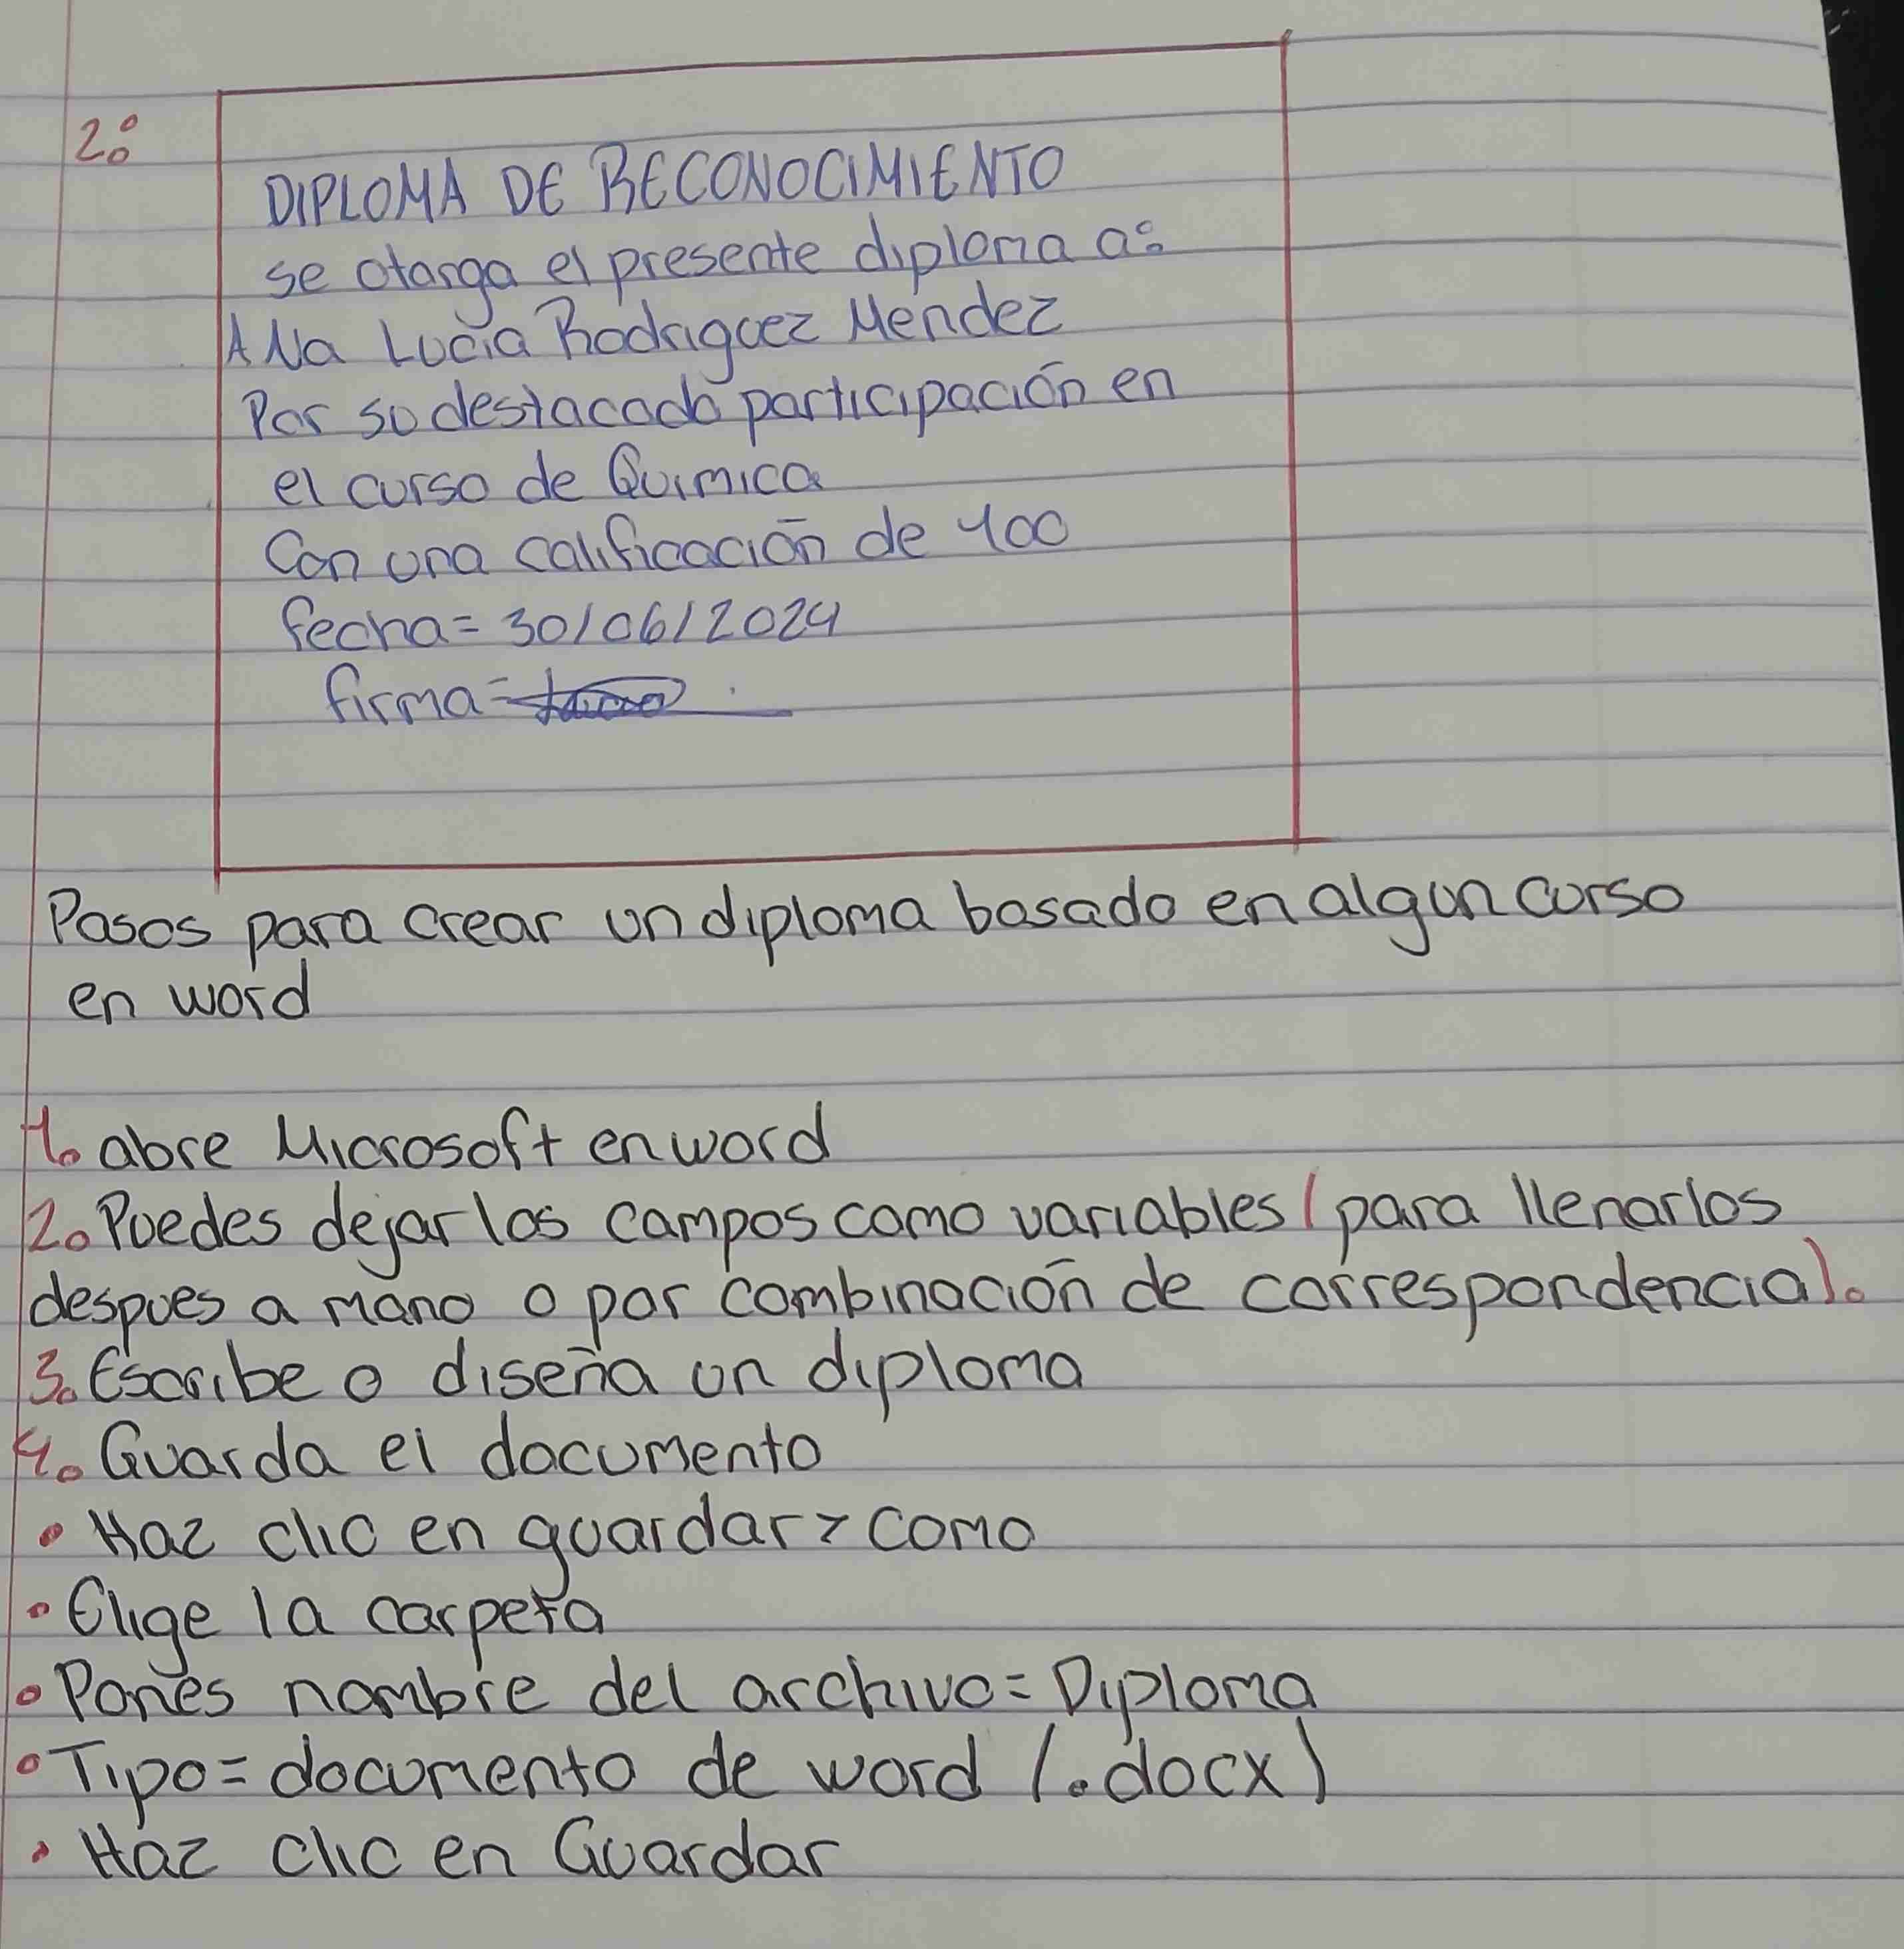 2:
DIPLOMA DE RECONOCIMIENTO
se otorga el presente diploma a:
ANa Lucia Rodriguez Mendez
Por su destacado participación en
el curso de Quimica
Con una calificación de 100
fecha= 30/06/2024
firma=
Pasos para crear un diploma basado en algun curso
en word
1. abre Microsoft en word
2. Puedes dejar los campos como variables (para llenarlos
despues a mano o por combinación de correspondencia).
3. Escribe o diseña un diploma
4. Guarda el documento
• Haz clic en guardar > como
• Elige la carpeta
• Pones nombre del archivo = Diploma
• Tipo = documento de word (.docx)
• Haz clic en Guardar